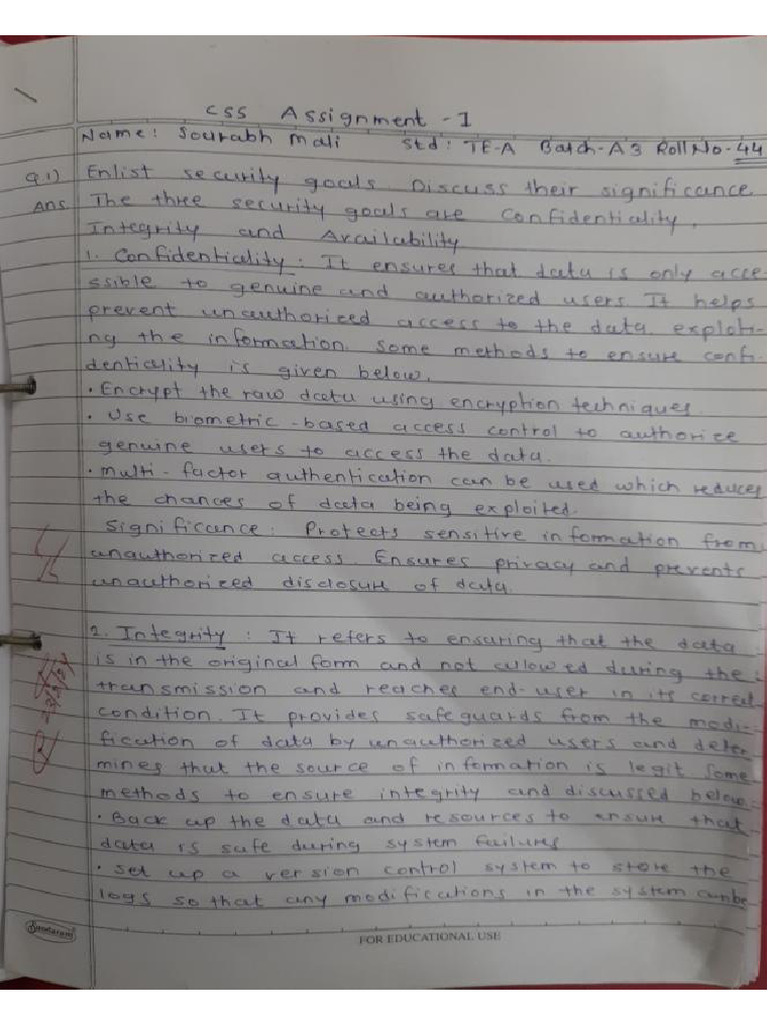 CSS Assignment - 1
Name: Sourabh Mali Std: TE-A Batch-A3 Roll No-44
Q1) Enlist security goals. Discuss their significance
Ans The three security goals are Confidentiality,
Integrity and Availability
1. Confidentiality: It ensures that data is only acce-
ssible to genuine and authorized users It helps
prevent unauthorized access to the data exploiti-
ng the information. Some methods to ensure confi-
dentiality is given below.
• Encrypt the raw data using encryption techniques.
• Use biometric-based access control to authorize
genuine users to access the data.
• multi-factor authentication can be used which reduces
the chances of data being exploited.
Significance: Protects sensitive information from
unauthorized access. Ensures privacy and prevents
unauthorized disclosure of data.
2. Integrity: It refers to ensuring that the data
is in the original form and not allowed during the
transmission and reaches end-user in its correct
condition. It provides safeguards from the modi-
fication of data by unauthorized users and deter
mines that the source of information is legit Some
methods to ensure integrity and discussed below.
• Back up the data and resources to ensure that
data is safe during system failures
• Set up a version control system to store the
logs so that any modifications in the system can be
Sundaram
FOR EDUCATIONAL USE